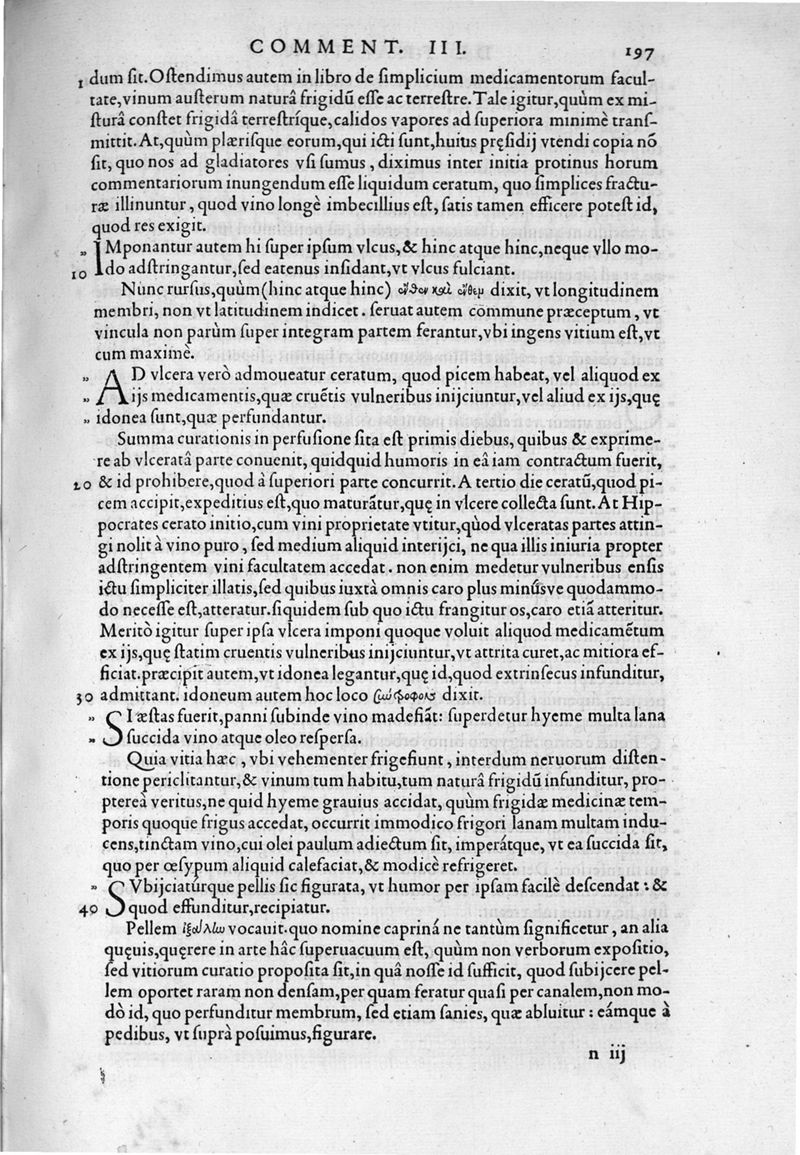 COMMENT. III. 197
1 dum ſit. Oſtendimus autem in libro de ſimplicium medicamentorum facul-
tate, vinum auſterum naturâ frigidũ eſſe ac terreſtre. Tale igitur, quùm ex mi-
ſturâ conſtet frigidâ terreſtríque, calidos vapores ad ſuperiora minimè tranſ-
mittit. At, quùm plæriſque eorum, qui icti ſunt, huius pręſidij vtendi copia nõ
ſit, quo nos ad gladiatores vſi ſumus, diximus inter initia protinus horum
commentariorum inungendum eſſe liquidum ceratum, quo ſimplices fractu-
ræ illinuntur, quod vino longè imbecillius eſt, ſatis tamen efficere poteſt id,
quod res exigit.
„ IMponantur autem hi ſuper ipſum vlcus, & hinc atque hinc, neque vllo mo-
10 do adſtringantur, ſed eatenus inſidant, vt vlcus fulciant.
Nunc rurſus, quùm (hinc atque hinc) dixit, vt longitudinem
membri, non vt latitudinem indicet. ſeruat autem commune præceptum, vt
vincula non parùm ſuper integram partem ferantur, vbi ingens vitium eſt, vt
cum maximè.
„ AD vlcera verò admoueatur ceratum, quod picem habeat, vel aliquod ex
„ ijs medicamentis, quæ cruẽtis vulneribus inijciuntur, vel aliud ex ijs, quę
„ idonea ſunt, quæ perfundantur.
Summa curationis in perfuſione ſita eſt primis diebus, quibus & exprime-
re ab vlceratâ parte conuenit, quidquid humoris in eâ iam contractum fuerit,
20 & id prohibere, quod à ſuperiori parte concurrit. A tertio die ceratũ, quod pi-
cem accipit, expeditius eſt, quo maturãtur, quę in vlcere collecta ſunt. At Hip-
pocrates cerato initio, cum vini proprietate vtitur, quòd vlceratas partes attin-
gi nolit à vino puro, ſed medium aliquid interijci, ne qua illis iniuria propter
adſtringentem vini facultatem accedat. non enim medetur vulneribus enſis
ictu ſimpliciter illatis, ſed quibus iuxtà omnis caro plus minúſve quodammo-
do neceſſe eſt, atteratur. ſiquidem ſub quo ictu frangitur os, caro etiã atteritur.
Meritò igitur ſuper ipſa vlcera imponi quoque voluit aliquod medicamẽtum
ex ijs, quę ſtatim cruentis vulneribus inijciuntur, vt attrita curet, ac mitiora ef-
ficiat. præcipit autem, vt idonea legantur, quę id, quod extrinſecus infunditur,
30 admittant. idoneum autem hoc loco dixit.
„ SI æſtas fuerit, panni ſubinde vino madefiãt: ſuperdetur hyeme multa lana
„ ſuccida vino atque oleo reſperſa.
Quia vitia hæc, vbi vehementer frigefiunt, interdum neruorum diſten-
tione periclitantur, & vinum tum habitu, tum naturâ frigidũ infunditur, pro-
ptereà veritus, ne quid hyeme grauius accidat, quùm frigidæ medicinæ tem-
poris quoque frigus accedat, occurrit immodico frigori lanam multam indu-
cens, tinctam vino, cui olei paulum adiectum ſit, imperátque, vt ea ſuccida ſit,
quo per œſypum aliquid calefaciat, & modicè refrigeret.
„ SVbijciatúrque pellis ſic figurata, vt humor per ipſam facilè deſcendat: &
40 quod effunditur, recipiatur.
Pellem vocauit. quo nomine caprinâ ne tantùm ſignificetur, an alia
quęuis, quęrere in arte hâc ſuperuacuum eſt, quùm non verborum expoſitio,
ſed vitiorum curatio propoſita ſit, in quâ noſſe id ſufficit, quod ſubijcere pel-
lem oportet raram non denſam, per quam feratur quaſi per canalem, non mo-
dò id, quo perfunditur membrum, ſed etiam ſanies, quæ abluitur: eámque à
pedibus, vt ſuprà poſuimus, figurare.
n iij